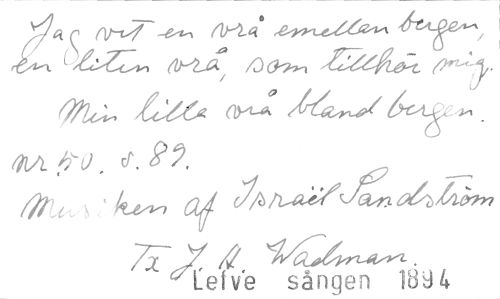 Jag vet en vrå emellan bergen,
en liten vrå, som tillhör mig.
Min lilla vrå bland bergen.
nr 50. s. 89.
Musiken af Israël Sandström
Tx J. A. Wadman.
Lefve sången 1894